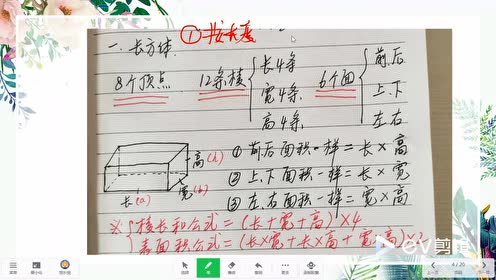 ①棱长度
一.长方体
8个顶点 12条棱 长4条 宽4条 高4条 6个面 前后 上下 左右
高(h)
宽(b)
长(a)
①前后面积一样=长×高
②上下面积一样=长×宽
③左右面积一样=宽×高
※ 棱长和公式=(长+宽+高)×4
表面积公式=(长×宽+长×高+宽×高)×2
ev剪辑
选择
4/20